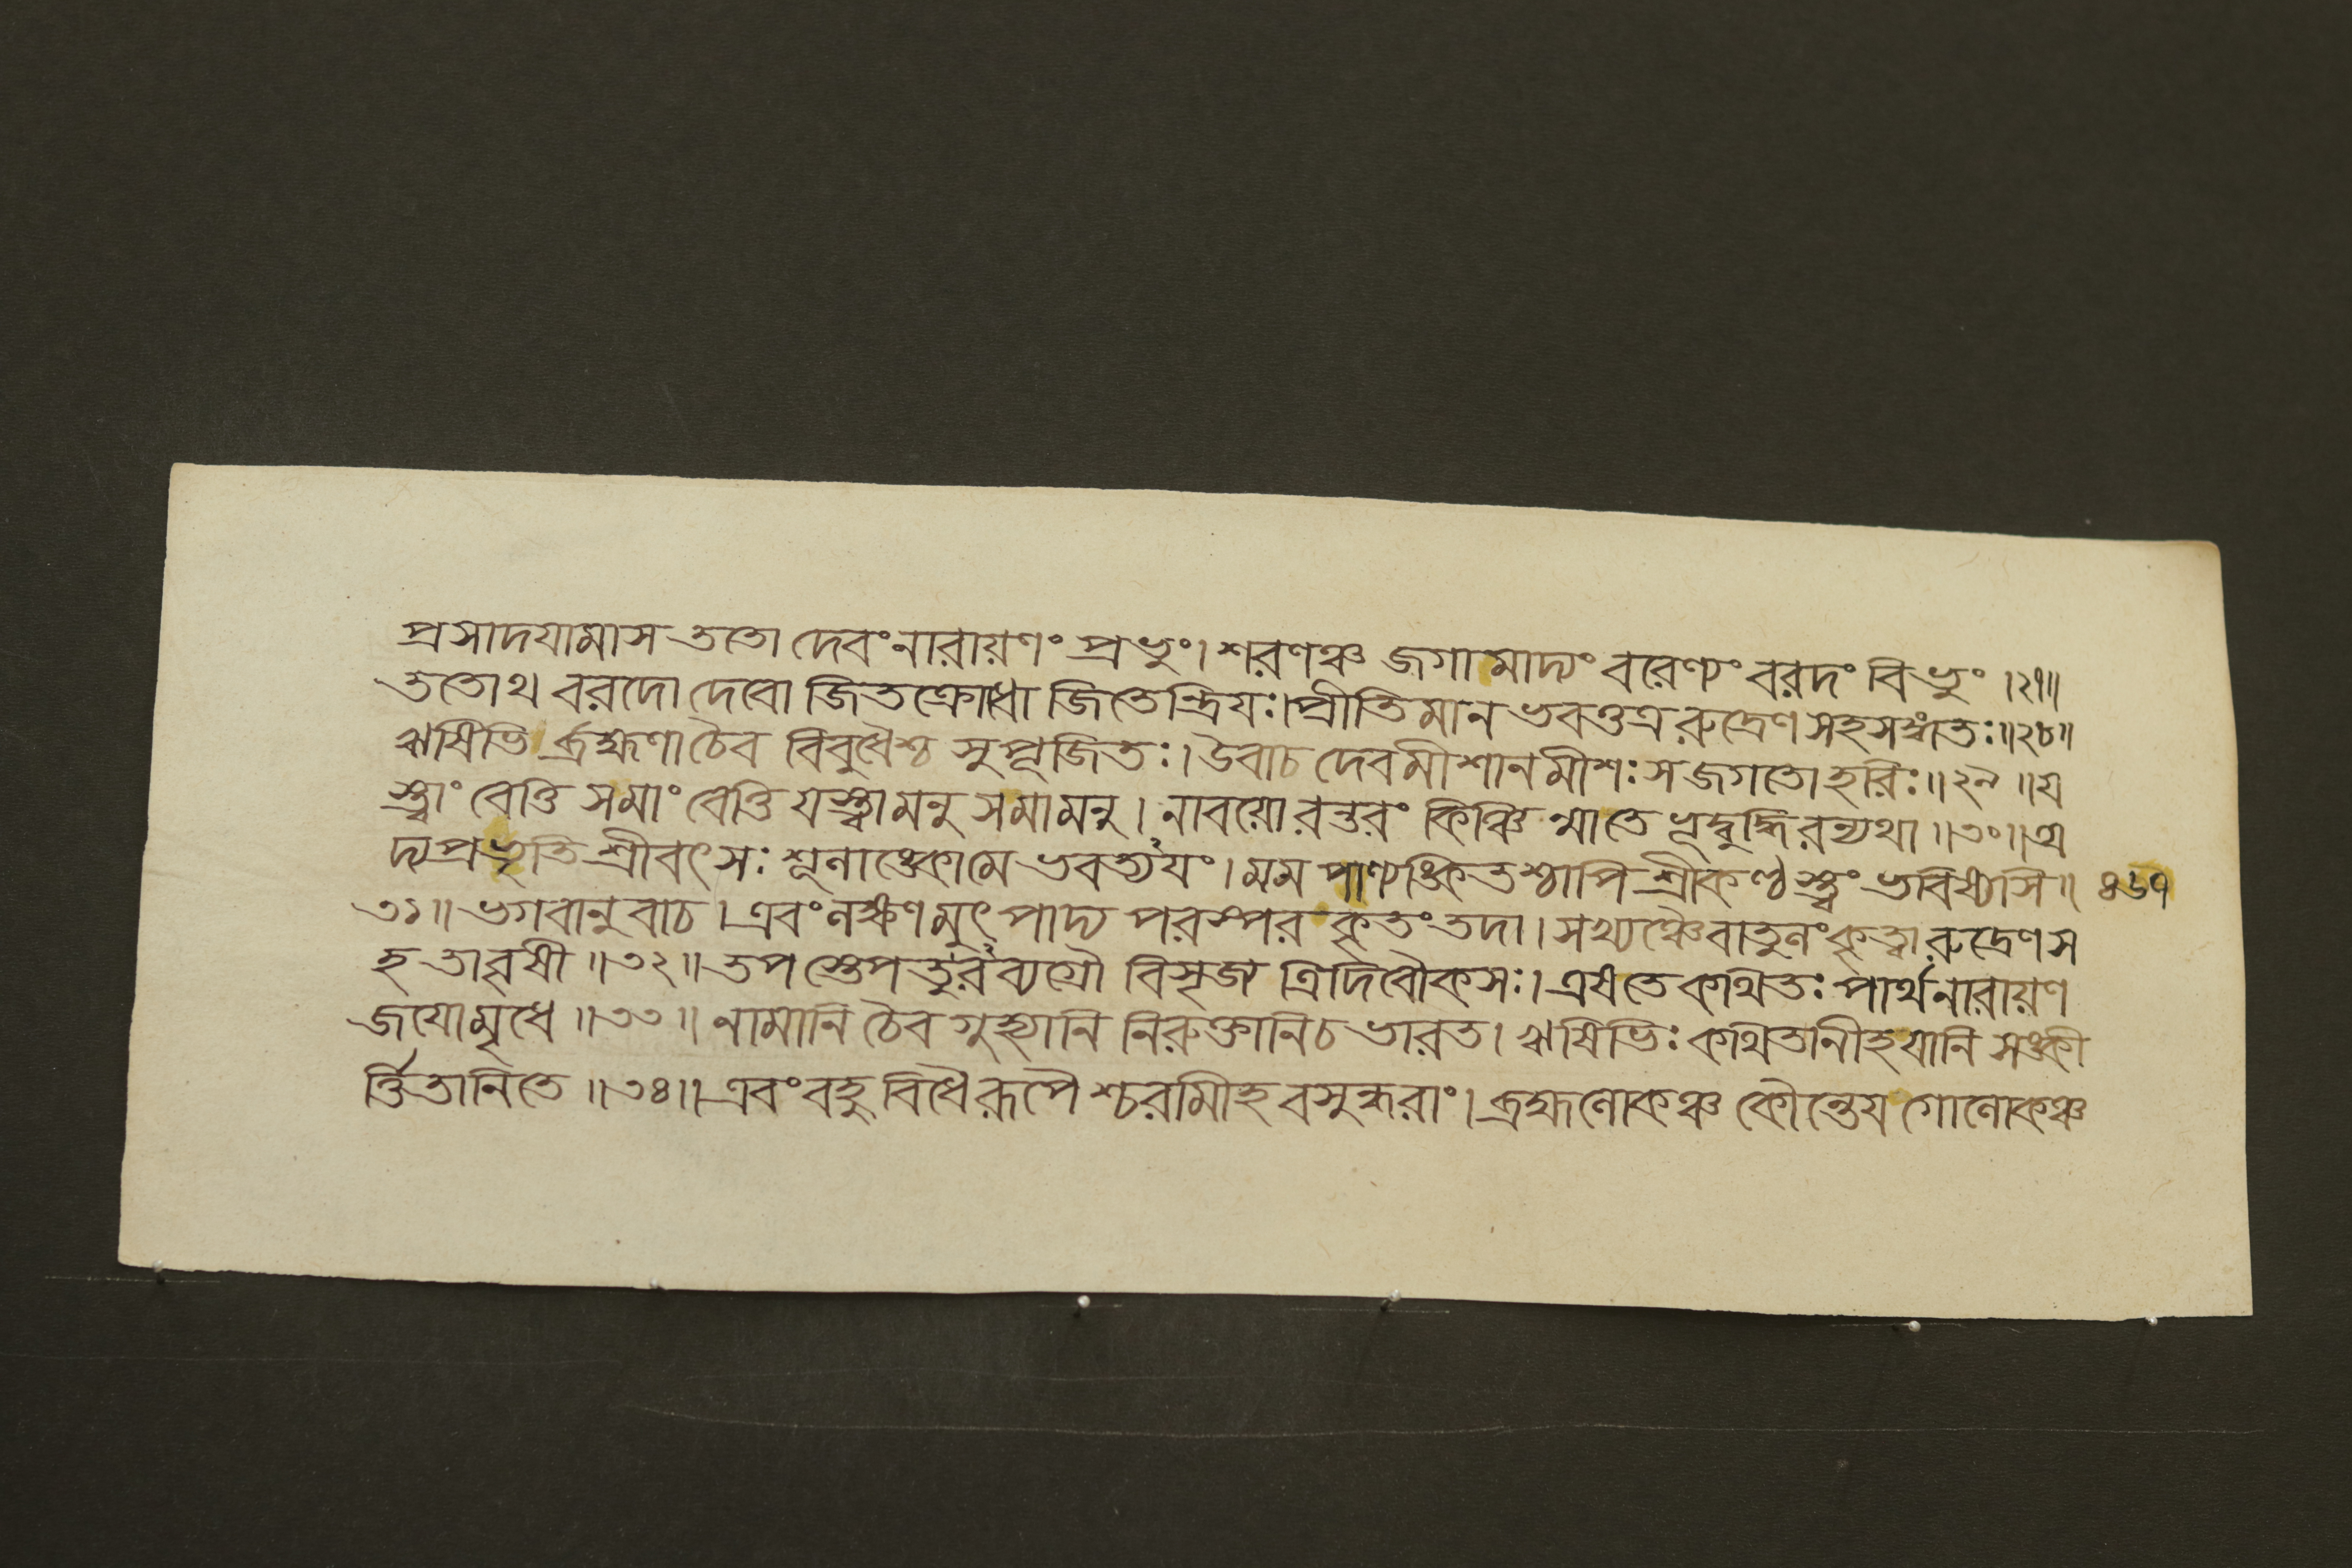 প্রসাদযামাস ততো দেবং নারায়ণং প্রভুং। শরণঞ্চ জগামাদ্যং বরেণ্যং বরদং বিভুং ।২৭॥
ততোথ বরদো দেবো জিতক্রোধো জিতেন্দ্রিযঃ। প্রীতিমান ভবত্তত্র রুদ্রেণ সহ সঙ্গতঃ॥২৮॥
ঋষিভি র্ব্রহ্মণা চৈব বিবুধৈশ্চ সুপূজিতঃ। উবাচ দেবমীশানমীশঃ স জগতো হরিঃ॥২৯॥ য
স্ত্বাং বেত্তি সমাং বেত্তি যস্ত্বামনু সমামনু। নাবয়োরন্তরং কিঞ্চিন্মাতে ভূদ্বুদ্ধিরন্যথা॥৩০॥ অ
দ্যপ্রভৃতি শ্রীবৎসঃ শূলাঙ্কোমে ভবত্যযং। মম পাণ্যঙ্কিতশ্চাপি শ্রীকণ্ঠস্ত্বং ভবিষ্যসি॥ ৪৬৭
৩১॥ ভগবানুবাচ। এবং লক্ষণমুৎপাদ্য পরস্পর কৃতং তদা। সখ্যঞ্চৈবাতুলং কৃত্বা রুদ্রেণ স
হ তাবৃষী॥৩২॥ তপস্তেপতুরব্যগ্রৌ বিসৃজ্য ত্রিদিবৌকসঃ। এষতে কথিতঃ পার্থ নারায়ণ
জযোমৃধে॥৩৩॥ নামানি চৈব গুহ্যানি নিরুক্তানিচ ভারত। ঋষিভিঃ কথিতানীহ যানি সঙ্কী
র্ত্তিতানিতে॥৩৪॥ এবং বহুবিধৈরূপৈশ্চরমীহ বসুন্ধরাং। ব্রহ্মলোকঞ্চ কৌন্তেয গোলোকঞ্চ